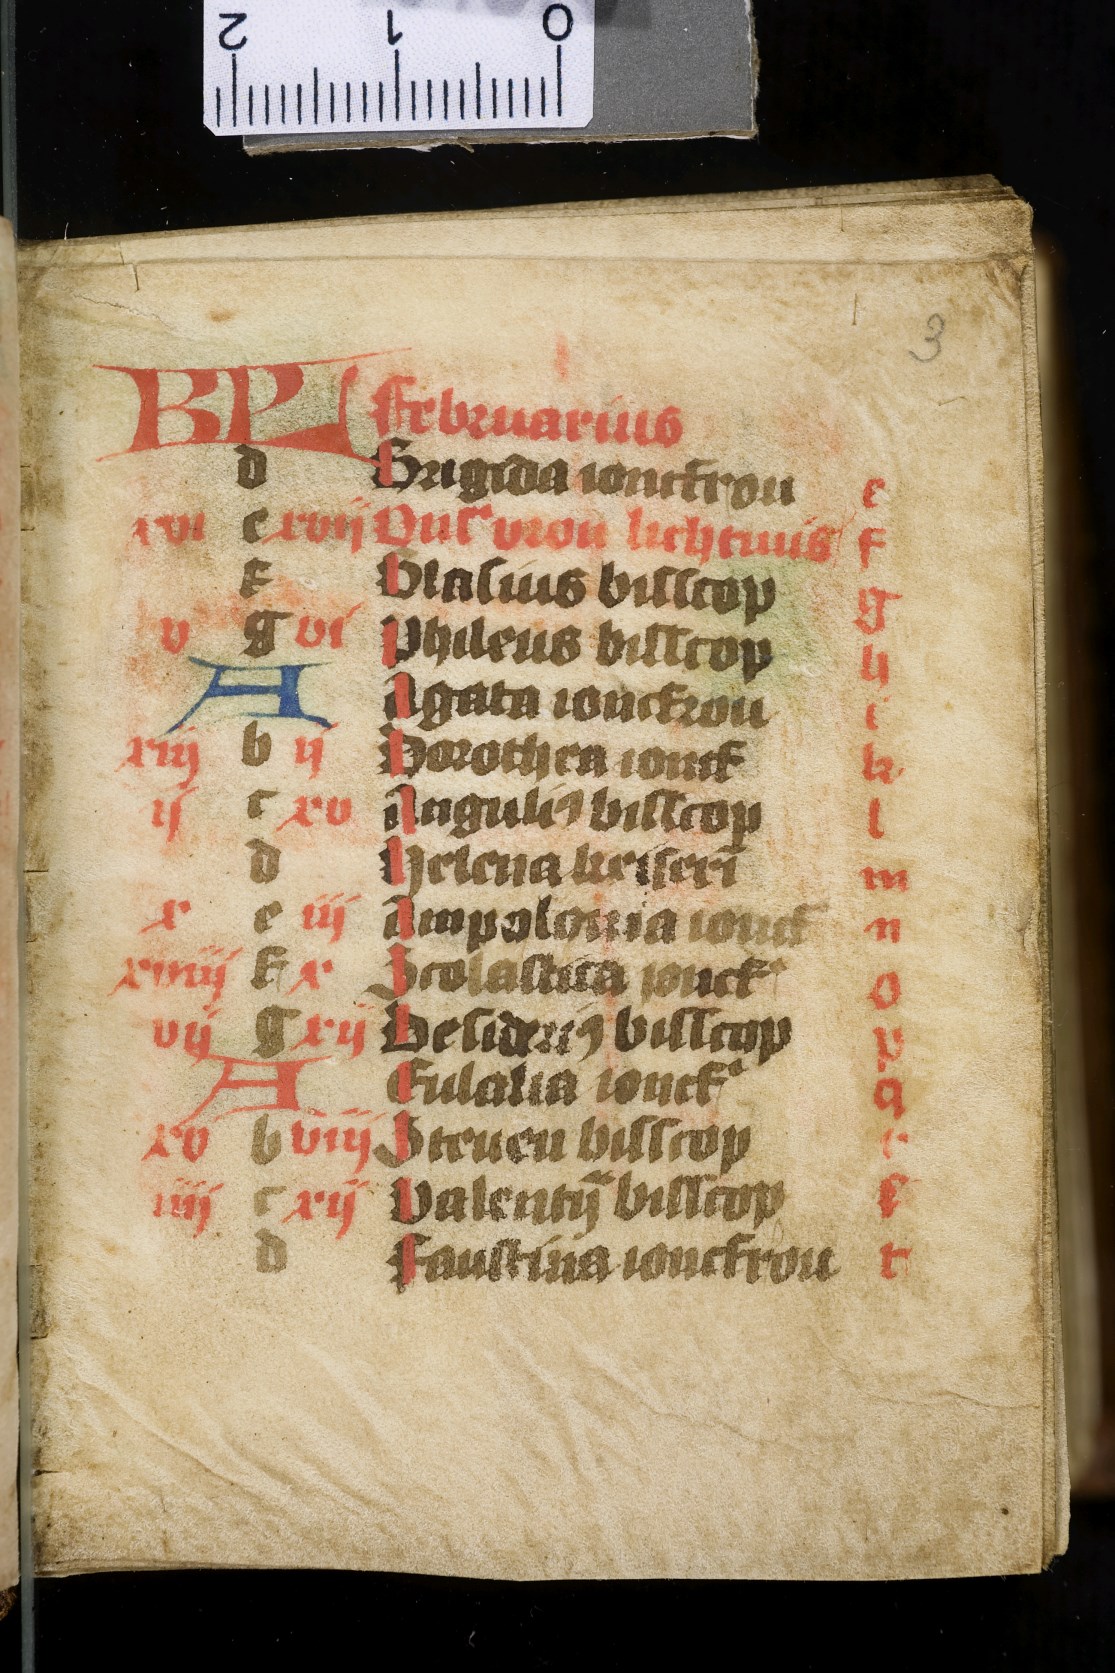 2 1 0
3
KL Februarius
d Brigida ionckfrou e
xvi e xvij Onser vrou lichtmis f
f Blasius bisscop g
v g vi Phileus bisscop h
A Agata ionckrou i
xiij b ij Dorothea ionck k
ij c xv Angulis bisscop l
d Helena keiseri m
x e iij Ampolonia ionck n
xviij f x Scolastica jonck o
vij g xij Desiderius bisscop p
A Eulalia ionckf q
xv b viij Steuen bisscop r
iiij c xij Valentijn bisscop s
d Faustina ionckfrou t